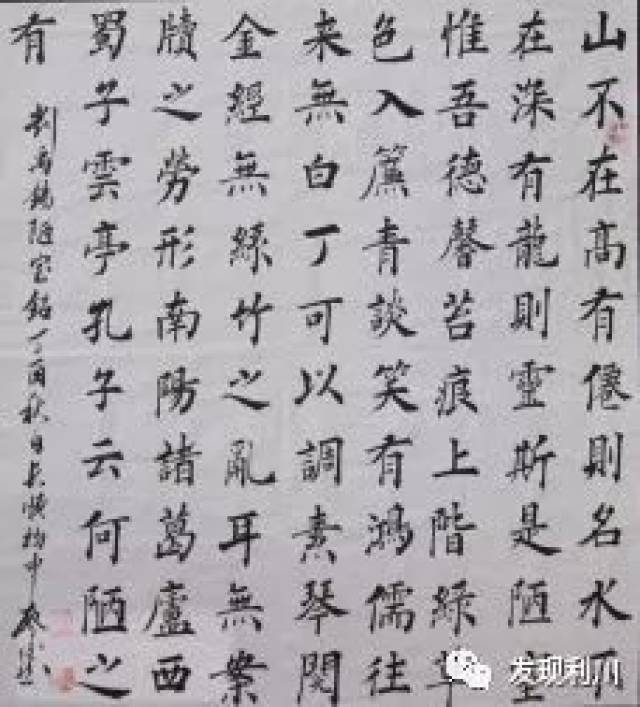 山不在高有僊則名水不
在深有龍則靈斯是陋室
惟吾德馨苔痕上階綠草
色入簾青談笑有鴻儒往
来無白丁可以調素琴閱
金經無絲竹之亂耳無案
牘之勞形南陽諸葛廬西
蜀子雲亭孔子云何陋之
有
劉禹錫陋室銘丁酉秋月
发现利川